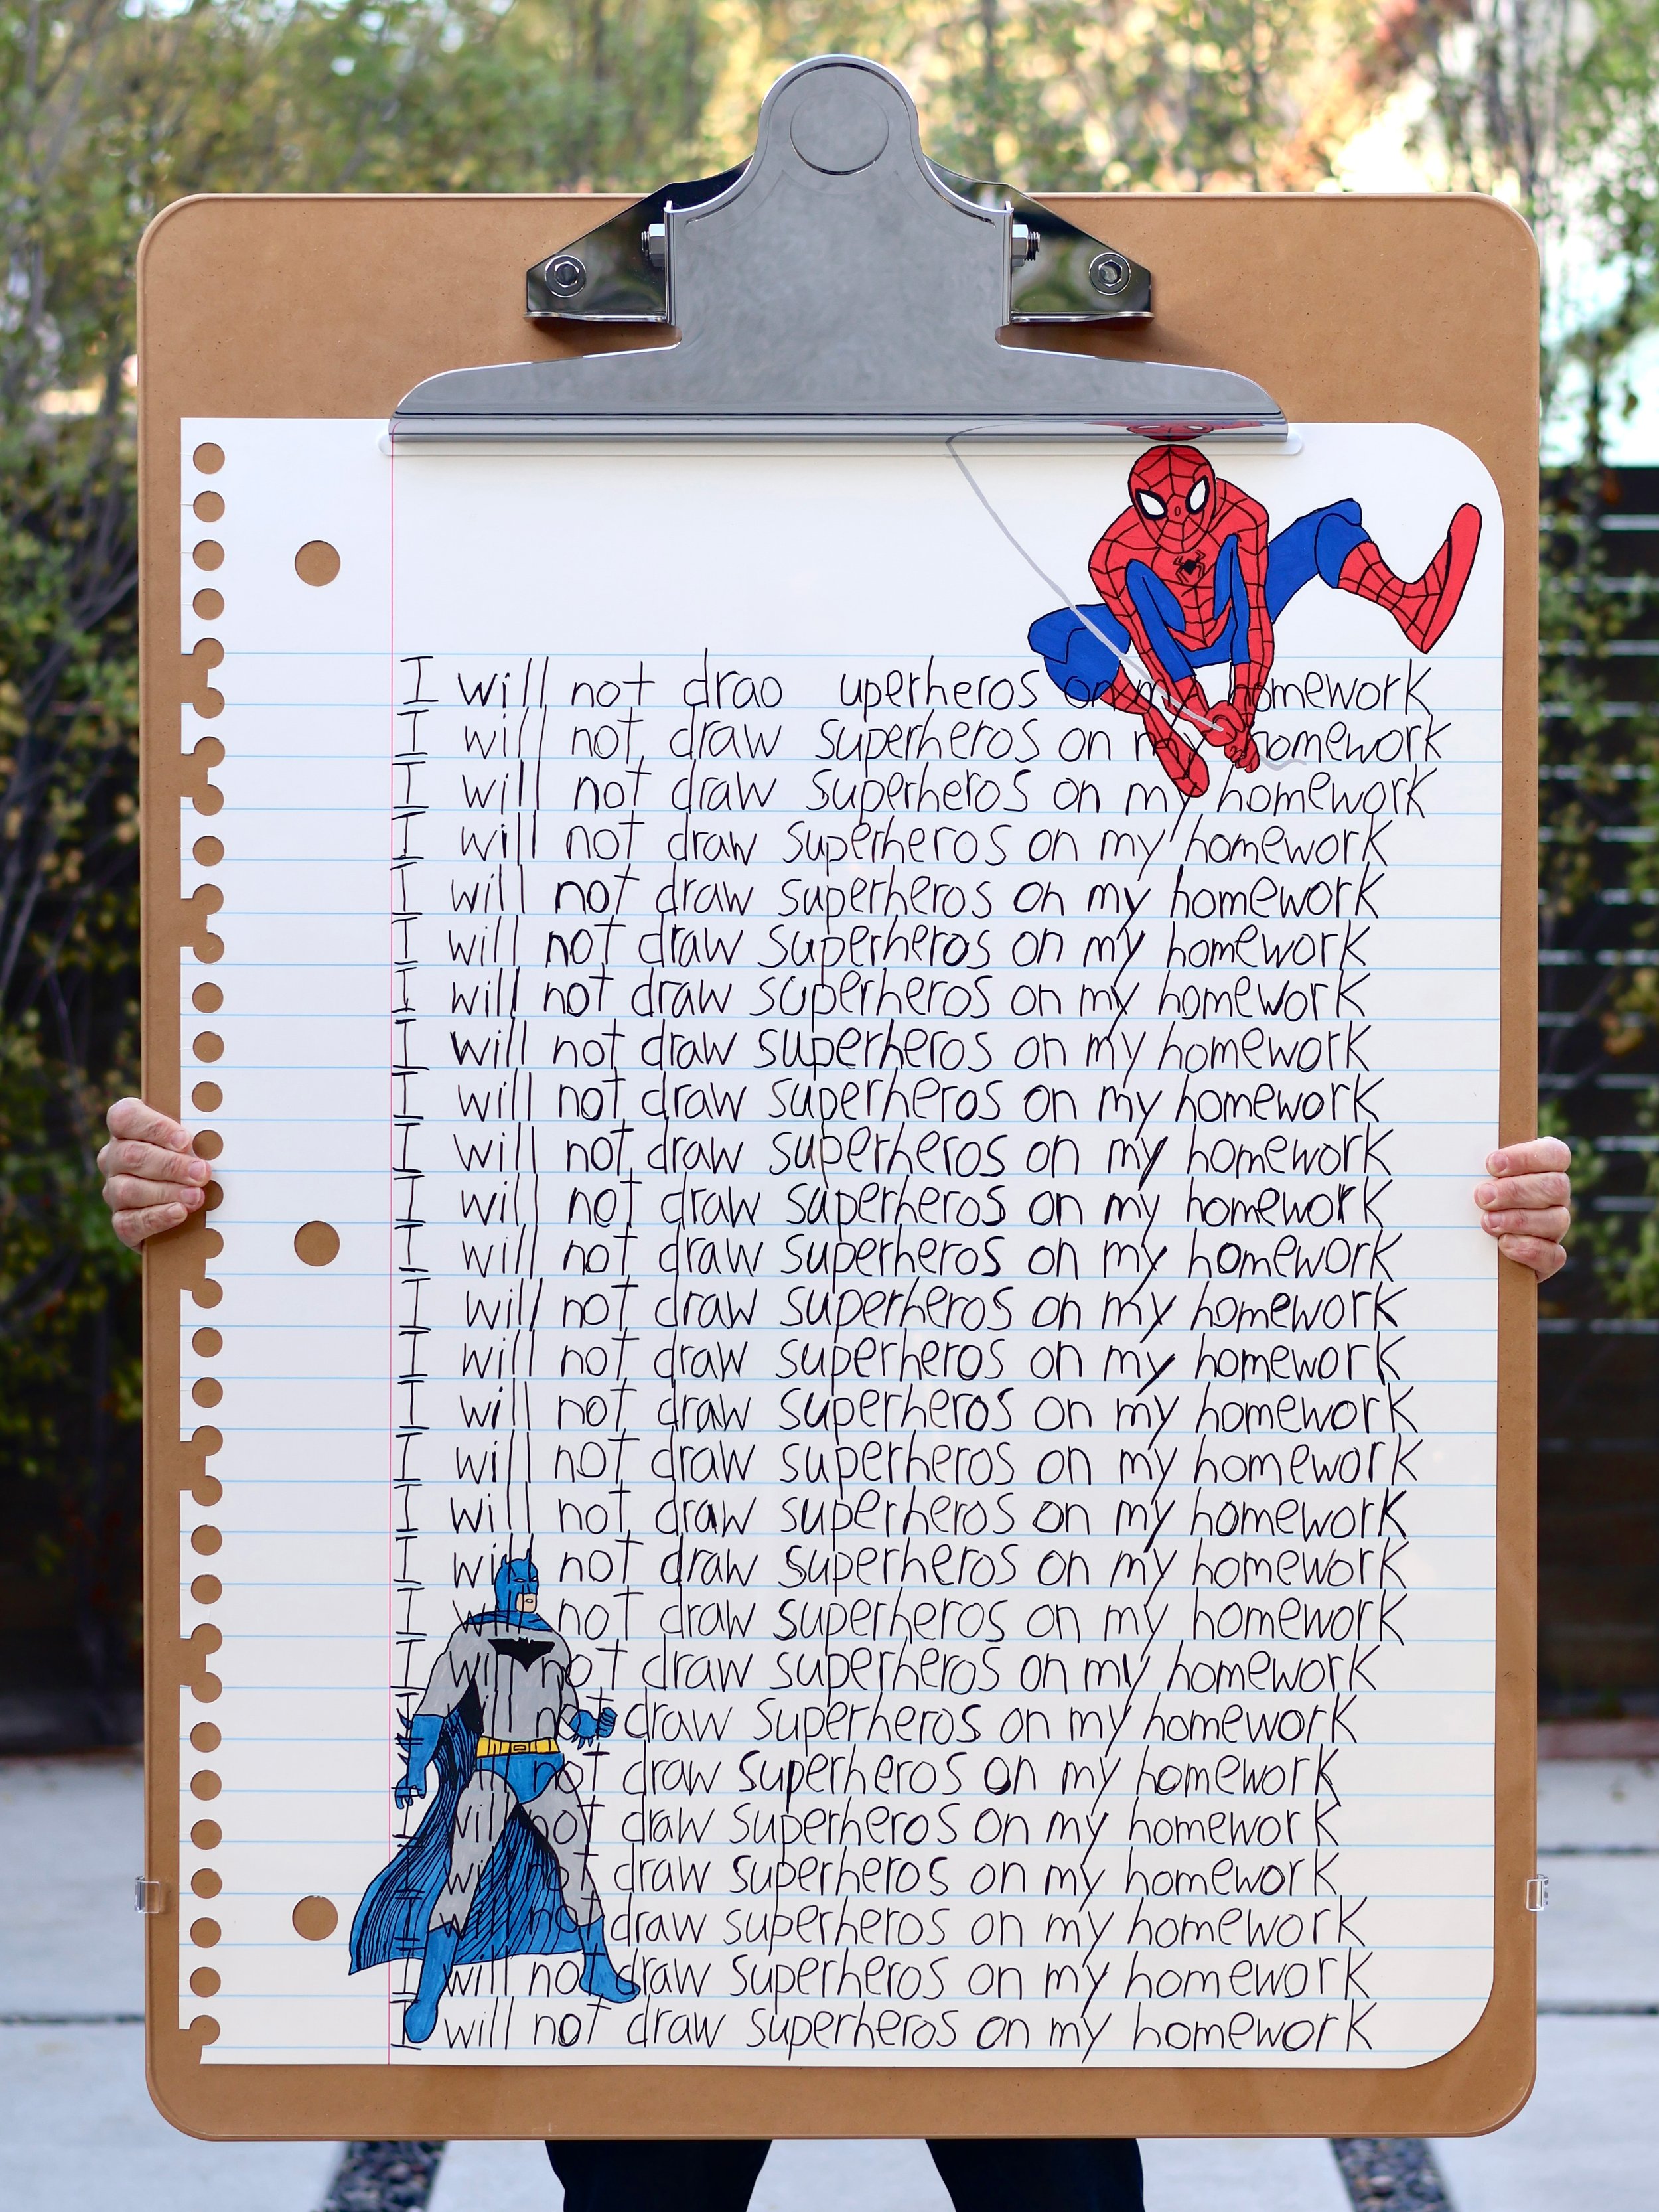 I will not drao uperheros on my homework
I will not draw superheros on my homework
I will not draw superheros on my homework
I will not draw superheros on my homework
I will not draw superheros on my homework
I will not draw superheros on my homework
I will not draw superheros on my homework
I will not draw superheros on my homework
I will not draw superheros on my homework
I will not draw superheros on my homework
I will not draw superheros on my homework
I will not draw superheros on my homework
I will not draw superheros on my homework
I will not draw superheros on my homework
I will not draw superheros on my homework
I will not draw superheros on my homework
I will not draw superheros on my homework
I will not draw superheros on my homework
I will not draw superheros on my homework
I will not draw superheros on my homework
I will not draw superheros on my homework
I will not draw superheros on my homework
I will not draw superheros on my homework
I will not draw superheros on my homework
I will not draw superheros on my homework
I will not draw superheros on my homework
I will not draw superheros on my homework